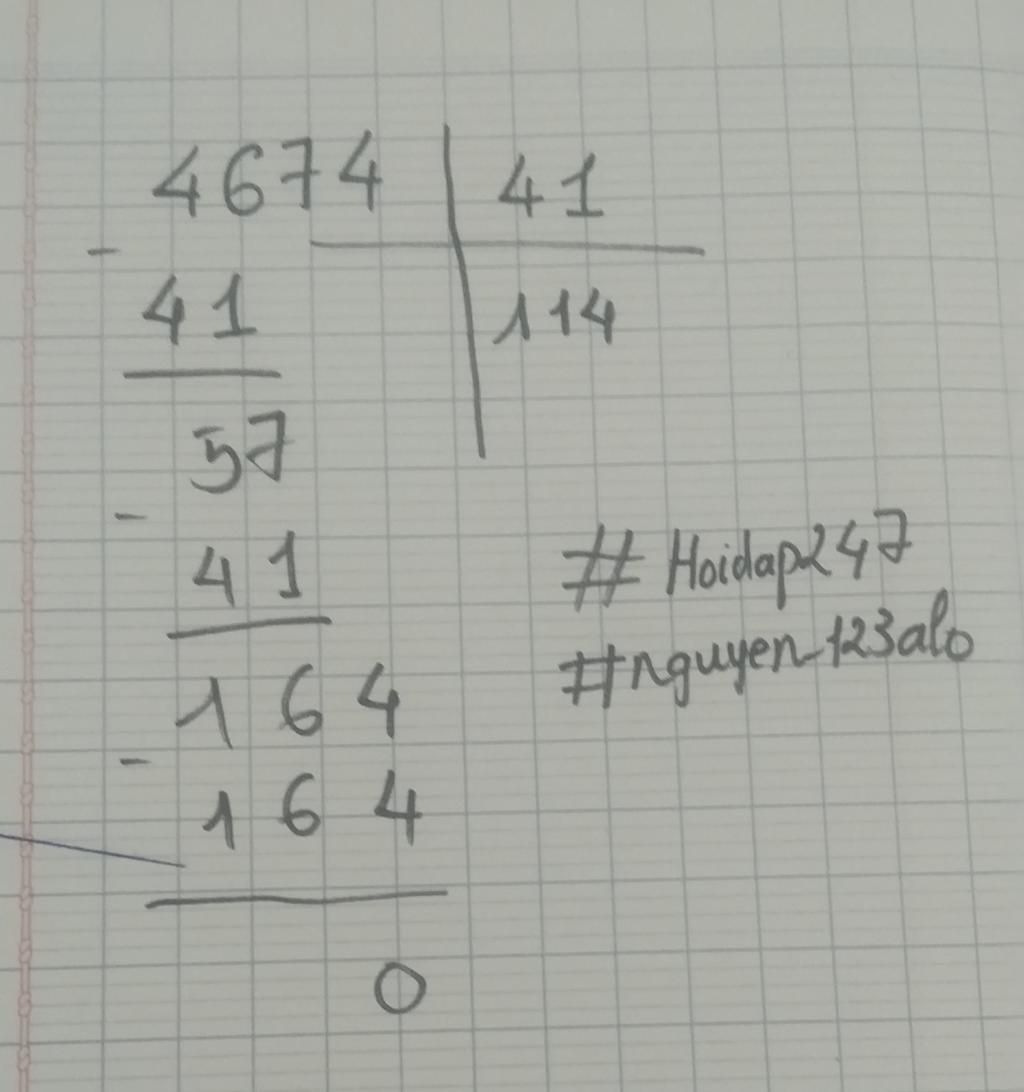 4674 41
- 
41 114
57
- 
41
164
- 
164
0
# Hoidap247
#nguyen123alo